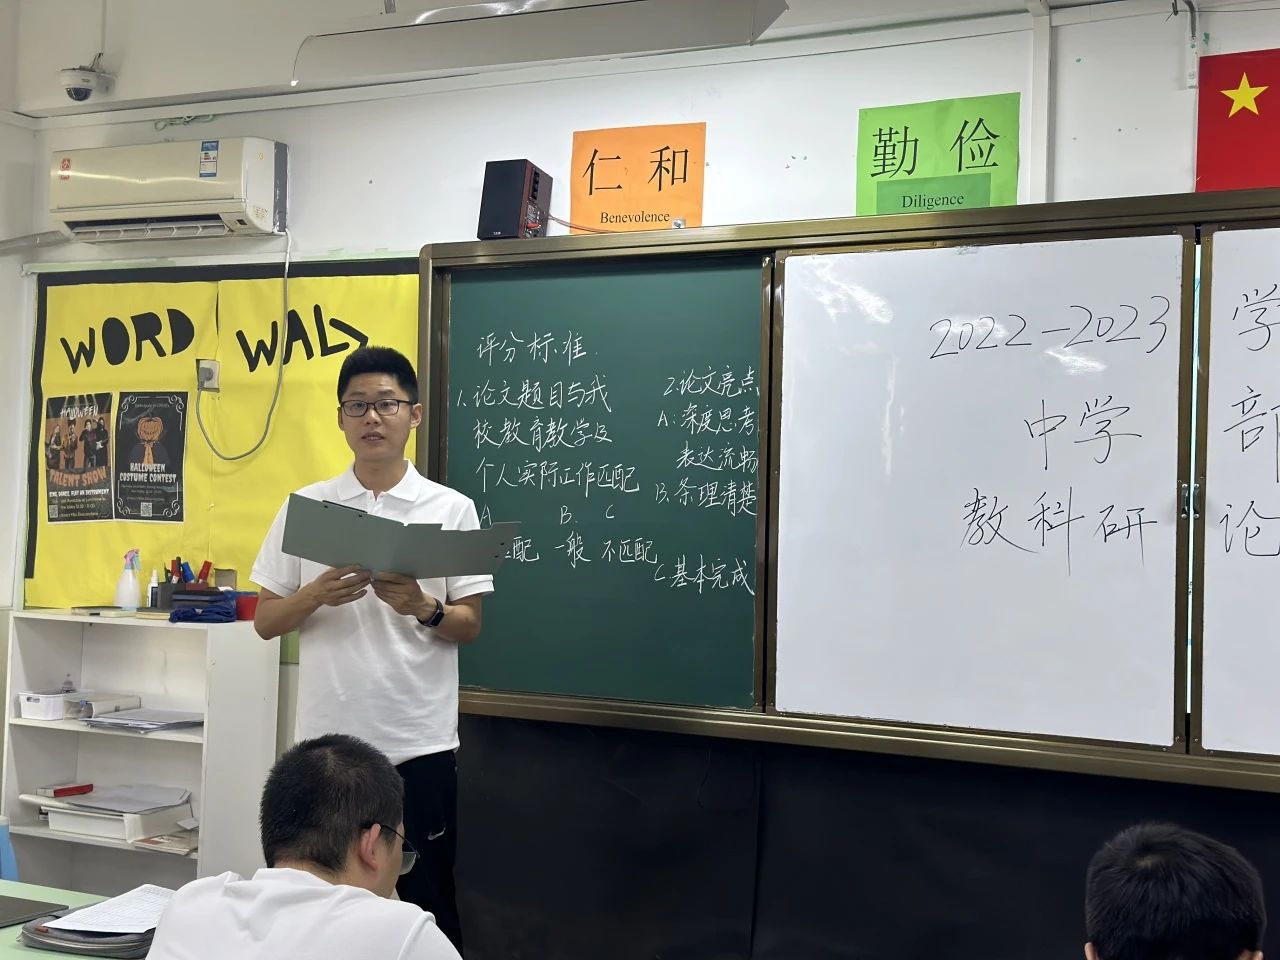 仁和
Benevolence
勤俭
Diligence
WORD WALL
HALLOWEEN
TALENT SHOW
SING, DANCE, PLAY AN INSTRUMENT
HALLOWEEN
COSTUME CONTEST
评分标准
1.论文题目与我
校教育教学及
个人实际工作匹配
A B. C
匹配 一般 不匹配
2.论文亮点
A.深度思考
表达流畅
B.条理清楚
C.基本完成
2022-2023 学
中学 部
教科研 论